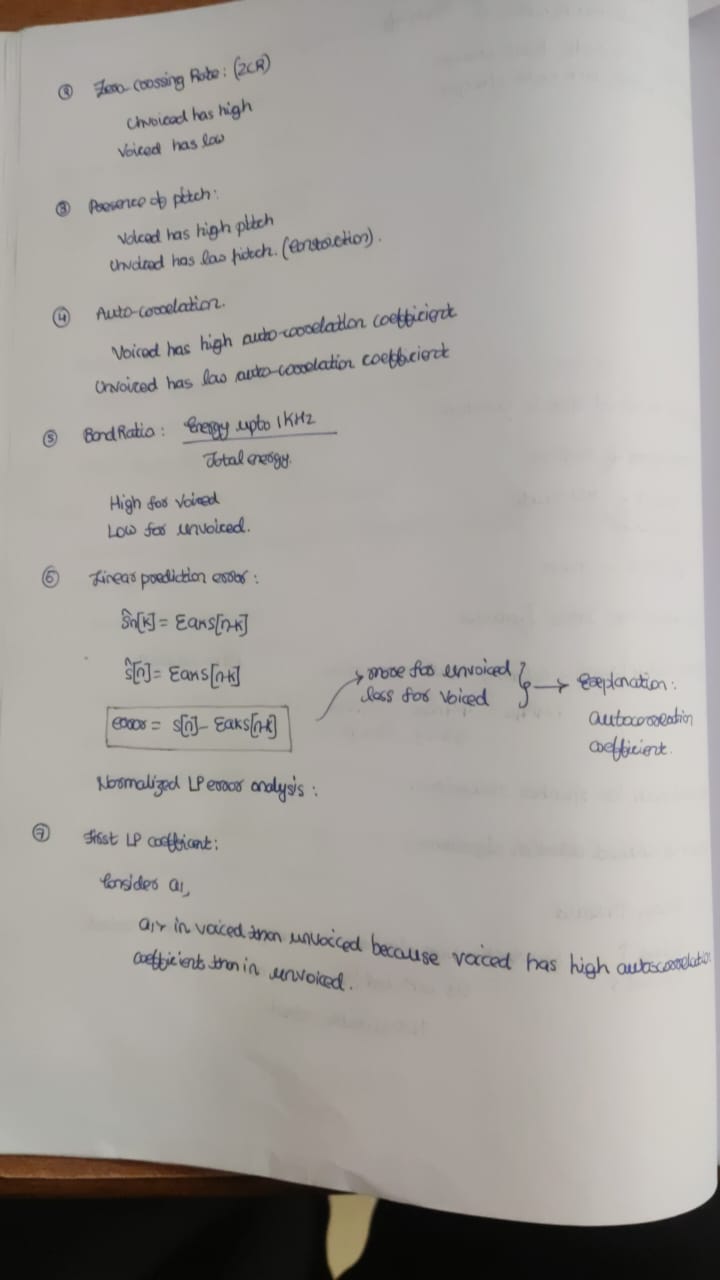 ② Zero-crossing Rate: (ZCR)
Unvoiced has high
Voiced has low
③ Presence of pitch:
Voiced has high pitch
Unvoiced has low pitch. (Constriction).
④ Auto-correlation.
Voiced has high auto-correlation coefficient
Unvoiced has low auto-correlation coefficient
⑤ Band Ratio: Energy upto 1KHz
Total energy.
High for voiced
Low for unvoiced.
⑥ Linear prediction error:
ŝn[k] = Σaks[n-k]
ŝ[n] = Σaks[n-k]
→ more for unvoiced
less for voiced } → Explanation:
error = s[n] - Σaks[n-k]
autocorrelation
coefficient.
Normalized LP error analysis:
⑦ First LP coefficient:
Consider a1,
a1↑ in voiced than unvoiced because voiced has high autocorrelation
coefficient than in unvoiced.